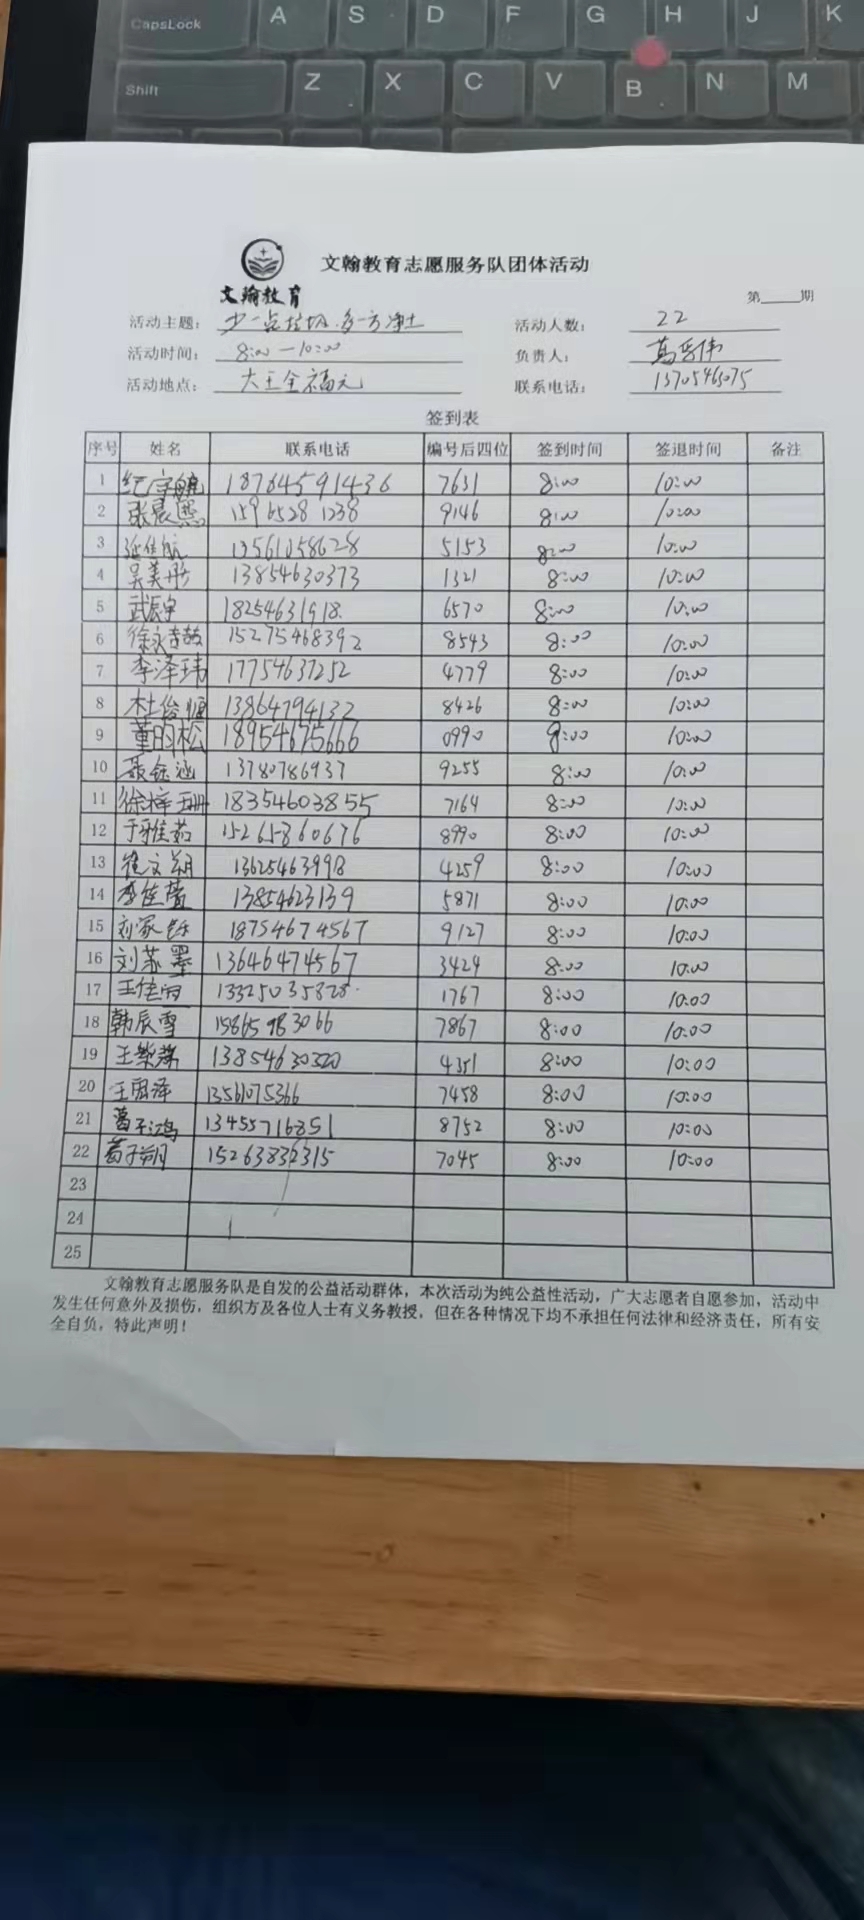 CapsLock A S D F G H J K
Shift Z X C V B N M
文翰教育志愿服务队团体活动
文翰教育
第____期
活动主题： 少一点垃圾.多一方净土 活动人数： 22
活动时间： 8:00—10:00 负责人： 葛岳伟
活动地点： 大王全福元 联系电话： 13705463075
签到表
序号 姓名 联系电话 编号后四位 签到时间 签退时间 备注
1 纪宇航 18764591436 7631 8:00 10:00
2 张晨熙 15965281238 9146 8:00 10:00
3 延隽航 13561058628 5153 8:00 10:00
4 吴美彤 13854630373 1321 8:00 10:00
5 武辰宇 18254631918. 6570 8:00 10:00
6 徐永喆 15275468392 8543 8:00 10:00
7 李泽玮 17754637252 4779 8:00 10:00
8 杜俊 13864794132 8426 8:00 10:00
9 董昀松 18954675666 0990 8:00 10:00
10 聂钰涵 13780786937 9255 8:00 10:00
11 徐梓珊 18354603855 7164 8:00 10:00
12 于雅茹 15265860676 8990 8:00 10:00
13 崔文朔 13625463998 4259 8:00 10:00
14 李佳萱 13854623139 5871 8:00 10:00
15 刘家 18754674567 9127 8:00 10:00
16 刘苏墨 13646474567 3424 8:00 10:00
17 王佳雨 13325035828 1767 8:00 10:00
18 韩辰雪 15865983066 7867 8:00 10:00
19 王 13854630320 4351 8:00 10:00
20 王泽 13561075366 7458 8:00 10:00
21 葛子鸿 13455716851 8752 8:00 10:00
22 葛子朔 15263832315 7045 8:00 10:00
23
24
25
文翰教育志愿服务队是自发的公益活动群体，本次活动为纯公益性活动，广大志愿者自愿参加，活动中
发生任何意外及损伤，组织方及各位人士有义务教授，但在各种情况下均不承担任何法律和经济责任，所有安
全自负，特此声明！